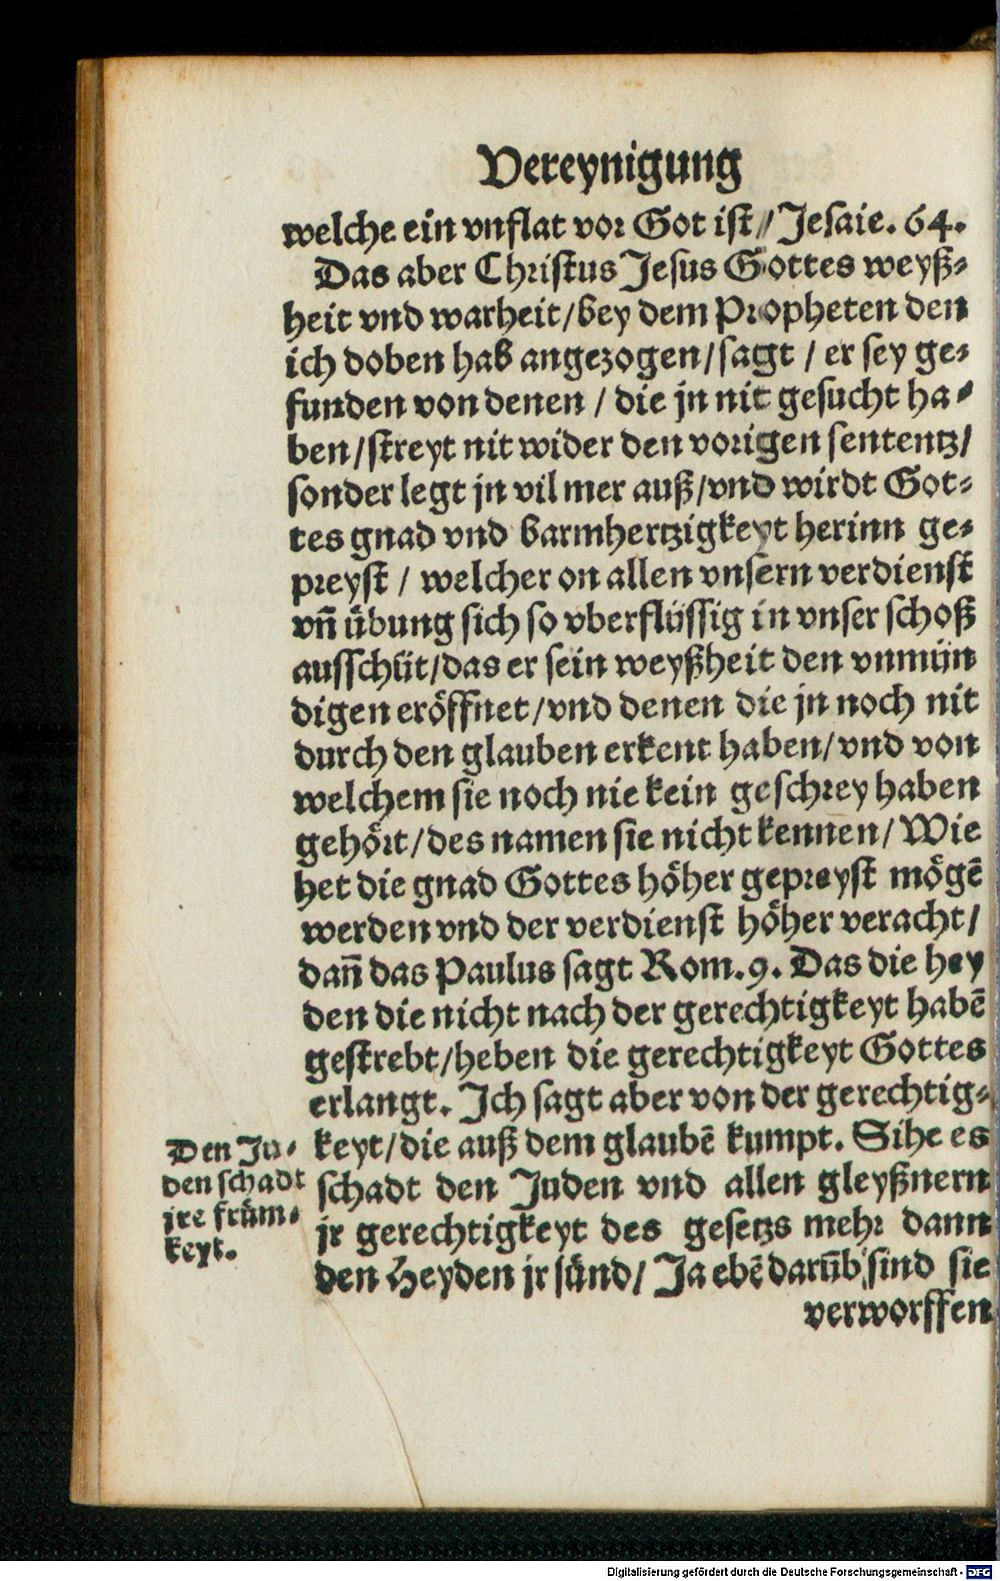 Vereynigung
welche ein vnflat vor Got ist // Jesaie. 64.
Das aber Christus Jesus Gottes weyß-
heit vnd warheit / bey dem Propheten den
ich doben hab angezogen / sagt / er sey ge-
funden von denen / die jn nit gesucht ha-
ben / streyt nit wider den vorigen sententz /
sonder legt jn vil mer auß / vnd wirdt Got-
tes gnad vnd barmhertzigkeyt herinn ge-
preyst / welcher on allen vnsern verdienst
vñ übung sich so vberflüssig in vnser schoß
ausschüt / das er sein weyßheit den vnmün
digen eröffnet / vnd denen die jn noch nit
durch den glauben erkent haben / vnd von
welchem sie noch nie kein geschrey haben
gehört / des namen sie nicht kennen / Wie
het die gnad Gottes höher gepreyst mögē
werden vnd der verdienst höher veracht /
dañ das Paulus sagt Rom. 9. Das die hey
den die nicht nach der gerechtigkeyt habē
gestrebt / heben die gerechtigkeyt Gottes
erlangt. Ich sagt aber von der gerechtig-
keyt / die auß dem glaubē kumpt. Sihe es
schadt den Juden vnd allen gleyßnern
jr gerechtigkeyt des gesetzs mehr dann
den Heyden jr sünd / Ja ebē darūb sind sie
verworffen
Den Ju-
den schadt
jre früm-
keyt.
Digitalisierung gefördert durch die Deutsche Forschungsgemeinschaft - DFG